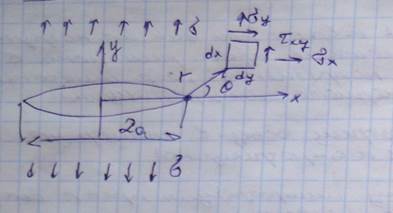 σ
σy
y
dx
τxy
σx
r
dy
θ
x
2a
σ